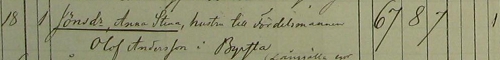 18 1 Jönsdr, Anna Stina, hustru till Fördelsmannen 67 8 7 1
Olof Andersson i Byrsta